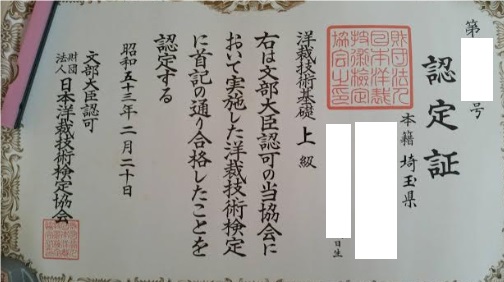 第 号
認定証
本籍 埼玉県
日生
財団法人
日本洋裁
技術検定
協会之印
洋裁技術基礎 上級
右は文部大臣認可の当協会に
おいて実施した洋裁技術検定
に首記の通り合格したことを
認定する
昭和五十三年二月二十日
文部大臣認可
財団法人 日本洋裁技術検定協会